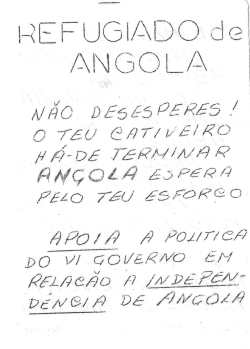 REFUGIADO de
ANGOLA
NÃO DESESPERES!
O TEU CATIVEIRO
HÁ-DE TERMINAR
ANGOLA ESPERA
PELO TEU ESFORÇO
APOIA A POLITICA
DO VI GOVERNO EM
RELAÇÃO À INDEPEN-
DÊNCIA DE ANGOLA